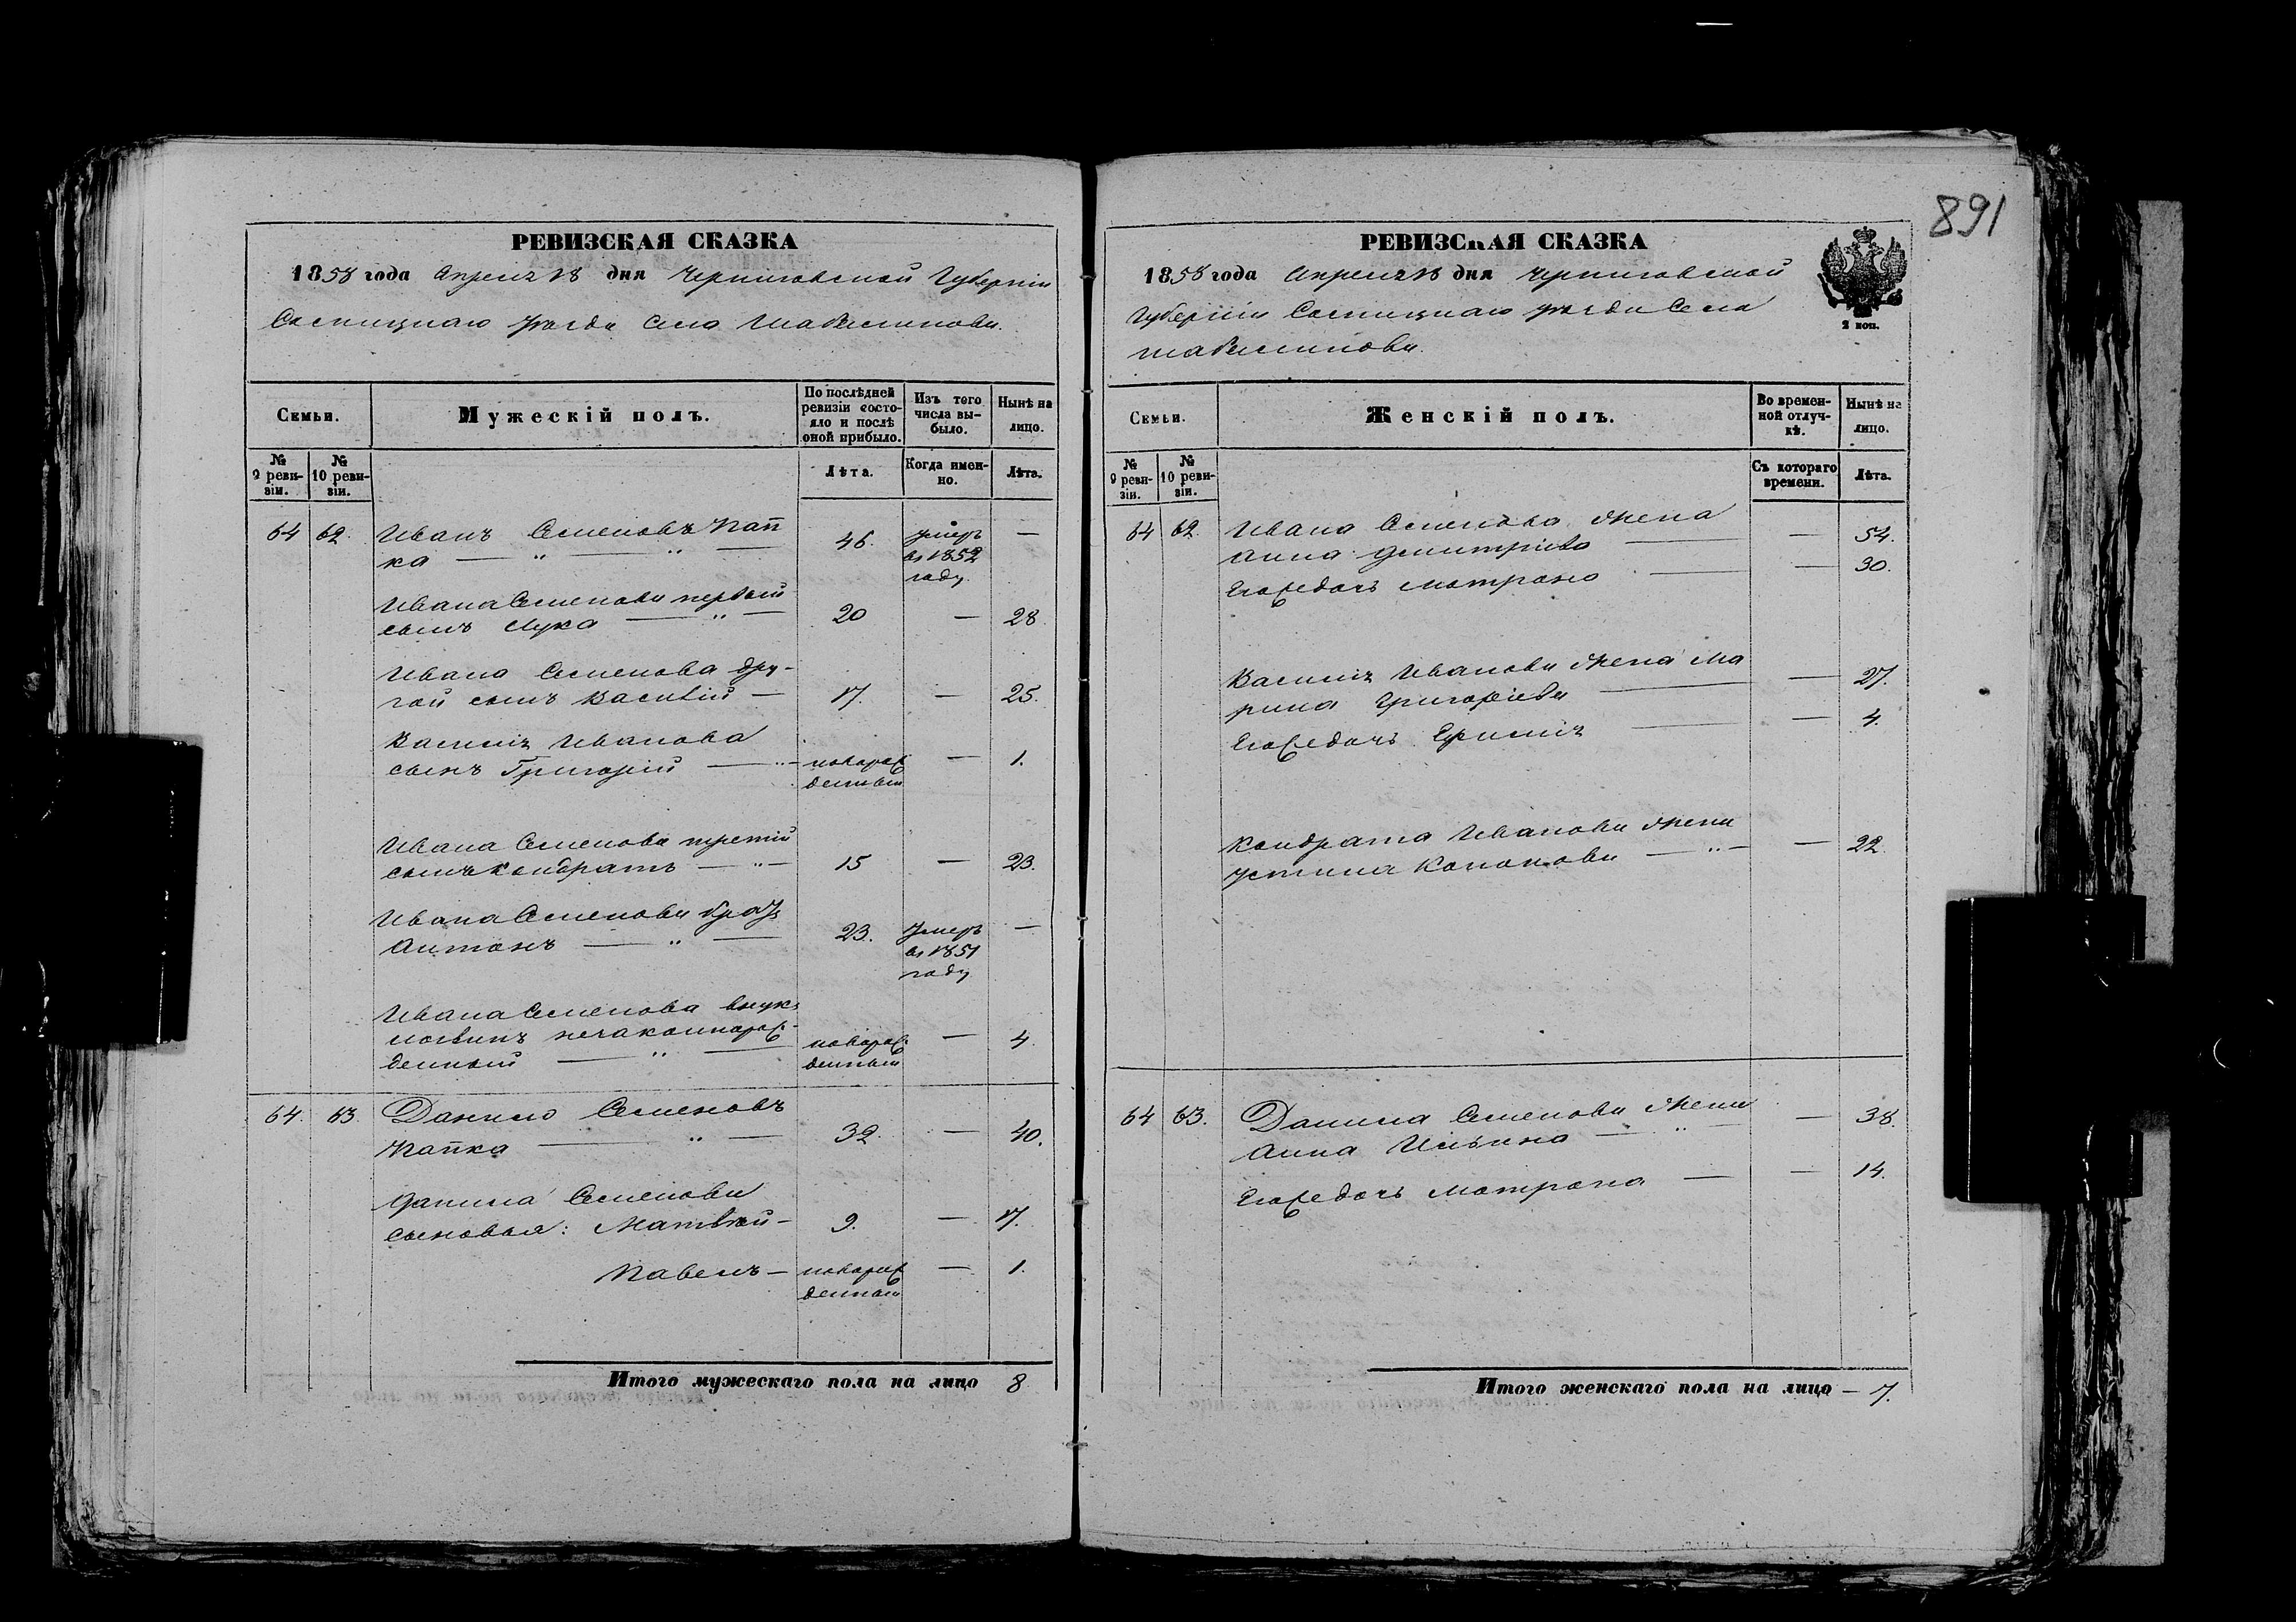 891
РЕВИЗСКАЯ СКАЗКА
1858 года Апреля 18 дня Черниговской Губернiи
Сосницкаго уѣзда Села Шабалинова.
Семьи.
Мужескiй полъ.
По послѣдней ревизiи состояло и послѣ оной прибыло.
Изъ того числа выбыло.
Нынѣ на лицо.
№ 9 ревизiи.
№ 10 ревизiи.
Лѣта.
Когда именно.
Лѣта.
64 62. Иванъ Семеновъ Пап 46. умеръ —
ка — " — " — въ 1852
году
Ивана Семенова первый
сынъ Лука — " — 20 — 28
Ивана Семенова дру-
гой сынъ Василiй — 17. — 25.
Василiя Иванова
сынъ Григорiй — " — новорож — 1.
денный
Ивана Семенова третiй
сынъ Кондратъ — " — 15 — 23.
Ивана Семенова братъ
Антонъ — " — 23. умеръ —
въ 1851
году
Ивана Семенова внукъ
незаконнорож- новорож — 4
денный — " — денный
64. 63. Данило Семеновъ
Папка — " — 32. — 40.
Данила Семенова
сыновья: Матвѣй — 9. — 17.
Павелъ — новорож — 1.
денный
Итого мужескаго пола на лицо 8
РЕВИЗСКАЯ СКАЗКА
1858 года Апреля 18 дня Черниговской
Губернiи Сосницкаго уѣзда Села
Шабалинова.
2 коп.
Семьи.
Женскiй полъ.
Во временной отлучкѣ.
Нынѣ на лицо.
№ 9 ревизiи.
№ 10 ревизiи.
Съ котораго времени.
Лѣта.
64 62. Ивана Семенова жена
Анна Дмитрiева — — 54.
Его ж дочь Матрона — — 30.
Василiя Иванова жена Ма
рина Григорiева — — 27.
Его ж дочь — — 4.
Кондрата Иванова жена
Устина Кононова — " — — 22
64 63. Данила Семенова жена
Анна Ильина — " — — 38.
Его ж дочь Матрона — — 14.
Итого женскаго пола на лицо — 7.